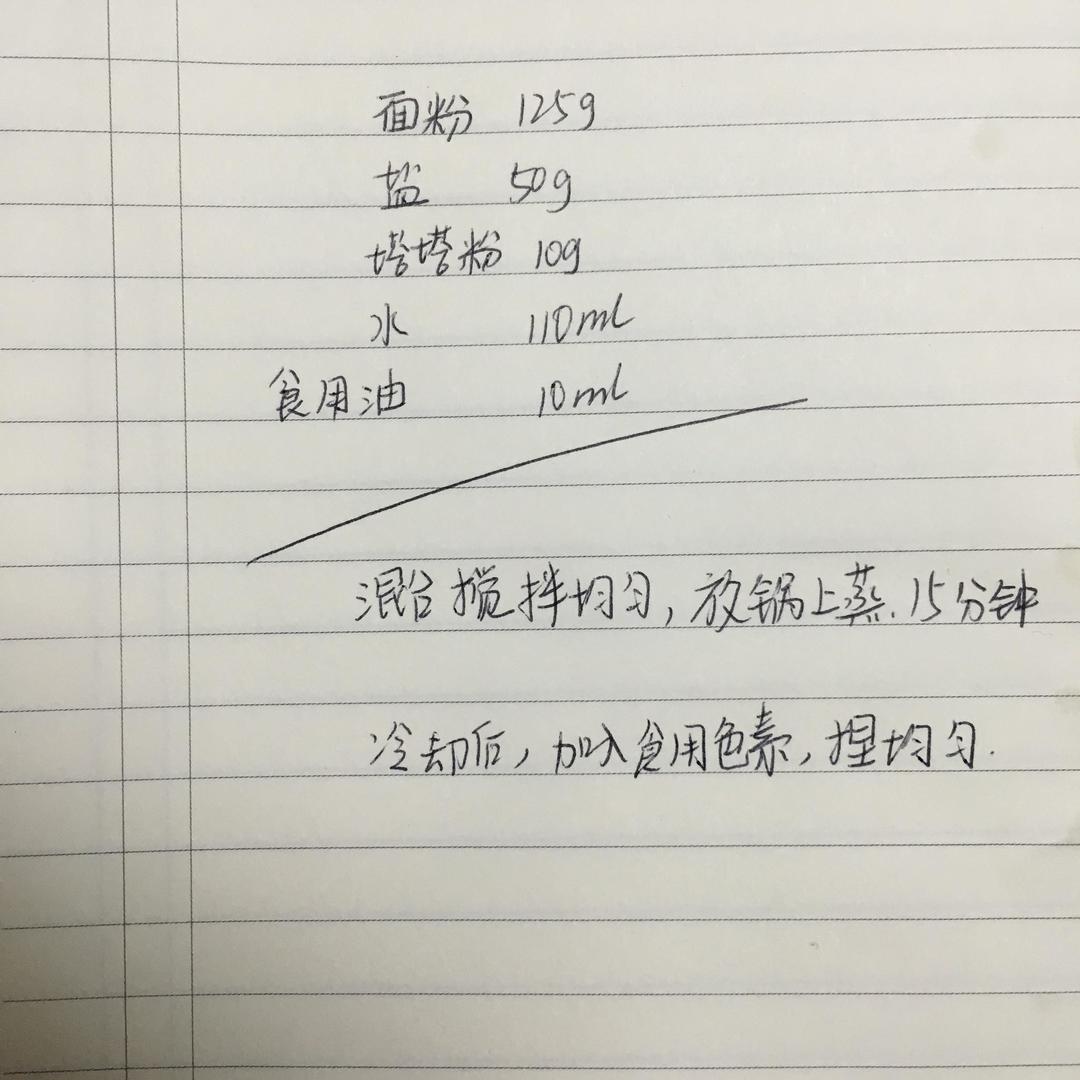 面粉 125g
盐 50g
塔塔粉 10g
水 110ml
食用油 10ml
混合搅拌均匀，放锅上蒸.15分钟
冷却后，加入食用色素，捏均匀.